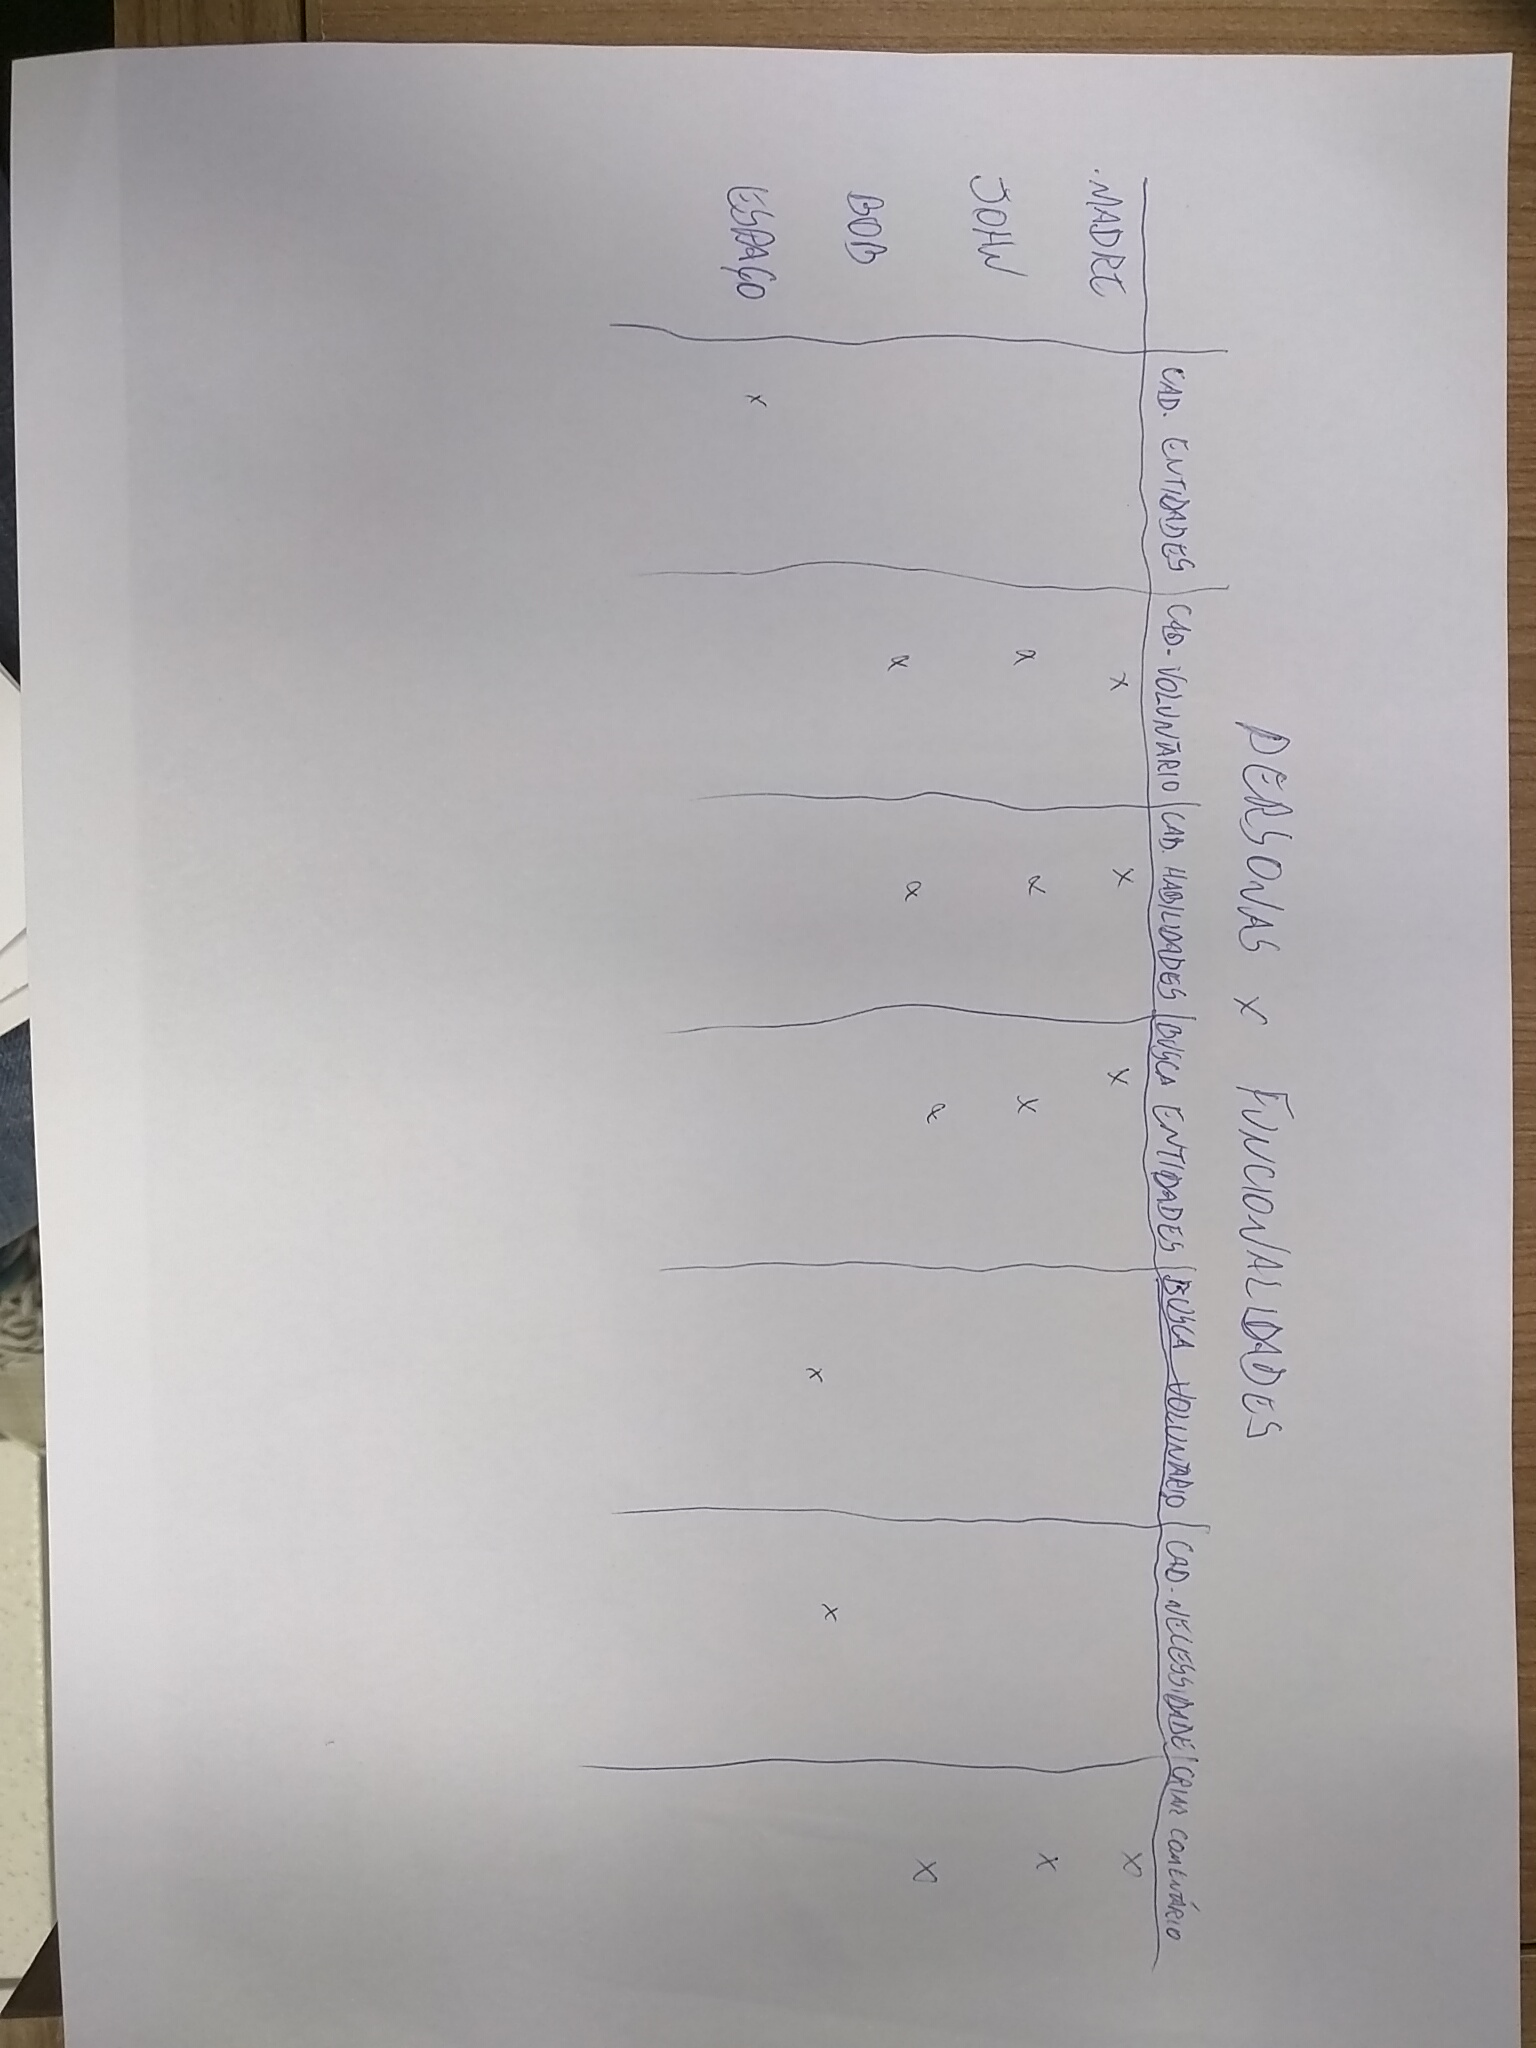 PERSONAS x FUNCIONALIDADES
CAD. ENTIDADES | CAD. VOLUNTÁRIO | CAD. HABILIDADES | BUSCA ENTIDADES | BUSCA VOLUNTÁRIO | CAD. NECESSIDADE | CRIAR COMENTÁRIO
MADRE x x x x
JOHN x x x x
BOB x x x x
ESPAÇO x x x